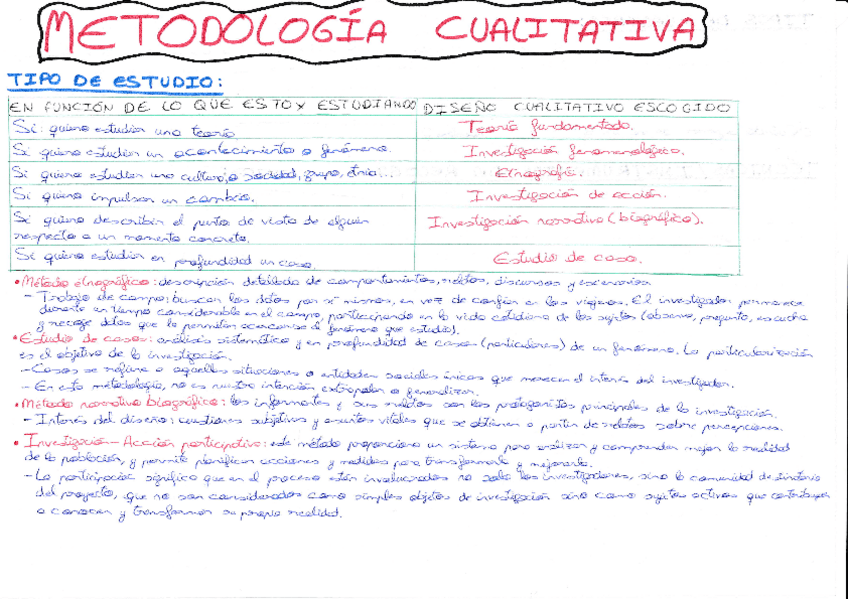 METODOLOGÍA CUALITATIVA
TIPO DE ESTUDIO:
EN FUNCIÓN DE LO QUE ESTOY ESTUDIANDO DISEÑO CUALITATIVO ESCOGIDO
Si quiero estudiar una teoría Teoría fundamentada.
Si quiero estudiar un acontecimiento o fenómeno. Investigación fenomenológica.
Si quiero estudiar una cultura, o sociedad, grupo, etnia... Etnografía.
Si quiero impulsar un cambio. Investigación de acción.
Si quiero describir el punto de vista de alguien Investigación narrativa (biográfica).
respecto a un momento concreto.
Si quiero estudiar en profundidad un caso. Estudio de caso.
• Método etnográfico: descripción detallada de comportamientos, relatos, discursos y escenarios.
- Trabajo de campo: buscan los datos por sí mismos, en vez de confiar en los viajeros. El investigador permanece
durante un tiempo considerable en el campo, participando en la vida cotidiana de los sujetos (observa, pregunta, escucha
y recoge datos que le permiten acercarse al fenómeno que estudia).
• Estudio de casos: análisis sistemático y en profundidad de casos (particulares) de un fenómeno. La particularización
es el objetivo de la investigación.
- Casos se refiere a aquellas situaciones o entidades sociales únicas que merecen el interés del investigador.
- En esta metodología, no es nuestra intención extrapolar o generalizar.
• Método narrativo biográfico: los informantes y sus relatos son los protagonistas principales de la investigación.
- Interés del diseño: cuestiones subjetivas y asuntos vitales que se obtienen a partir de relatos sobre percepciones.
• Investigación-Acción participativa: este método proporciona un sistema para analizar y comprender mejor la realidad
de la población, y permite planificar acciones y medidas para transformarla y mejorarla.
- La participación significa que en el proceso están involucrados no solo los investigadores, sino la comunidad destinataria
del proyecto, que no son considerados como simples objetos de investigación sino como sujetos activos que contribuyen
a conocer y transformar su propia realidad.